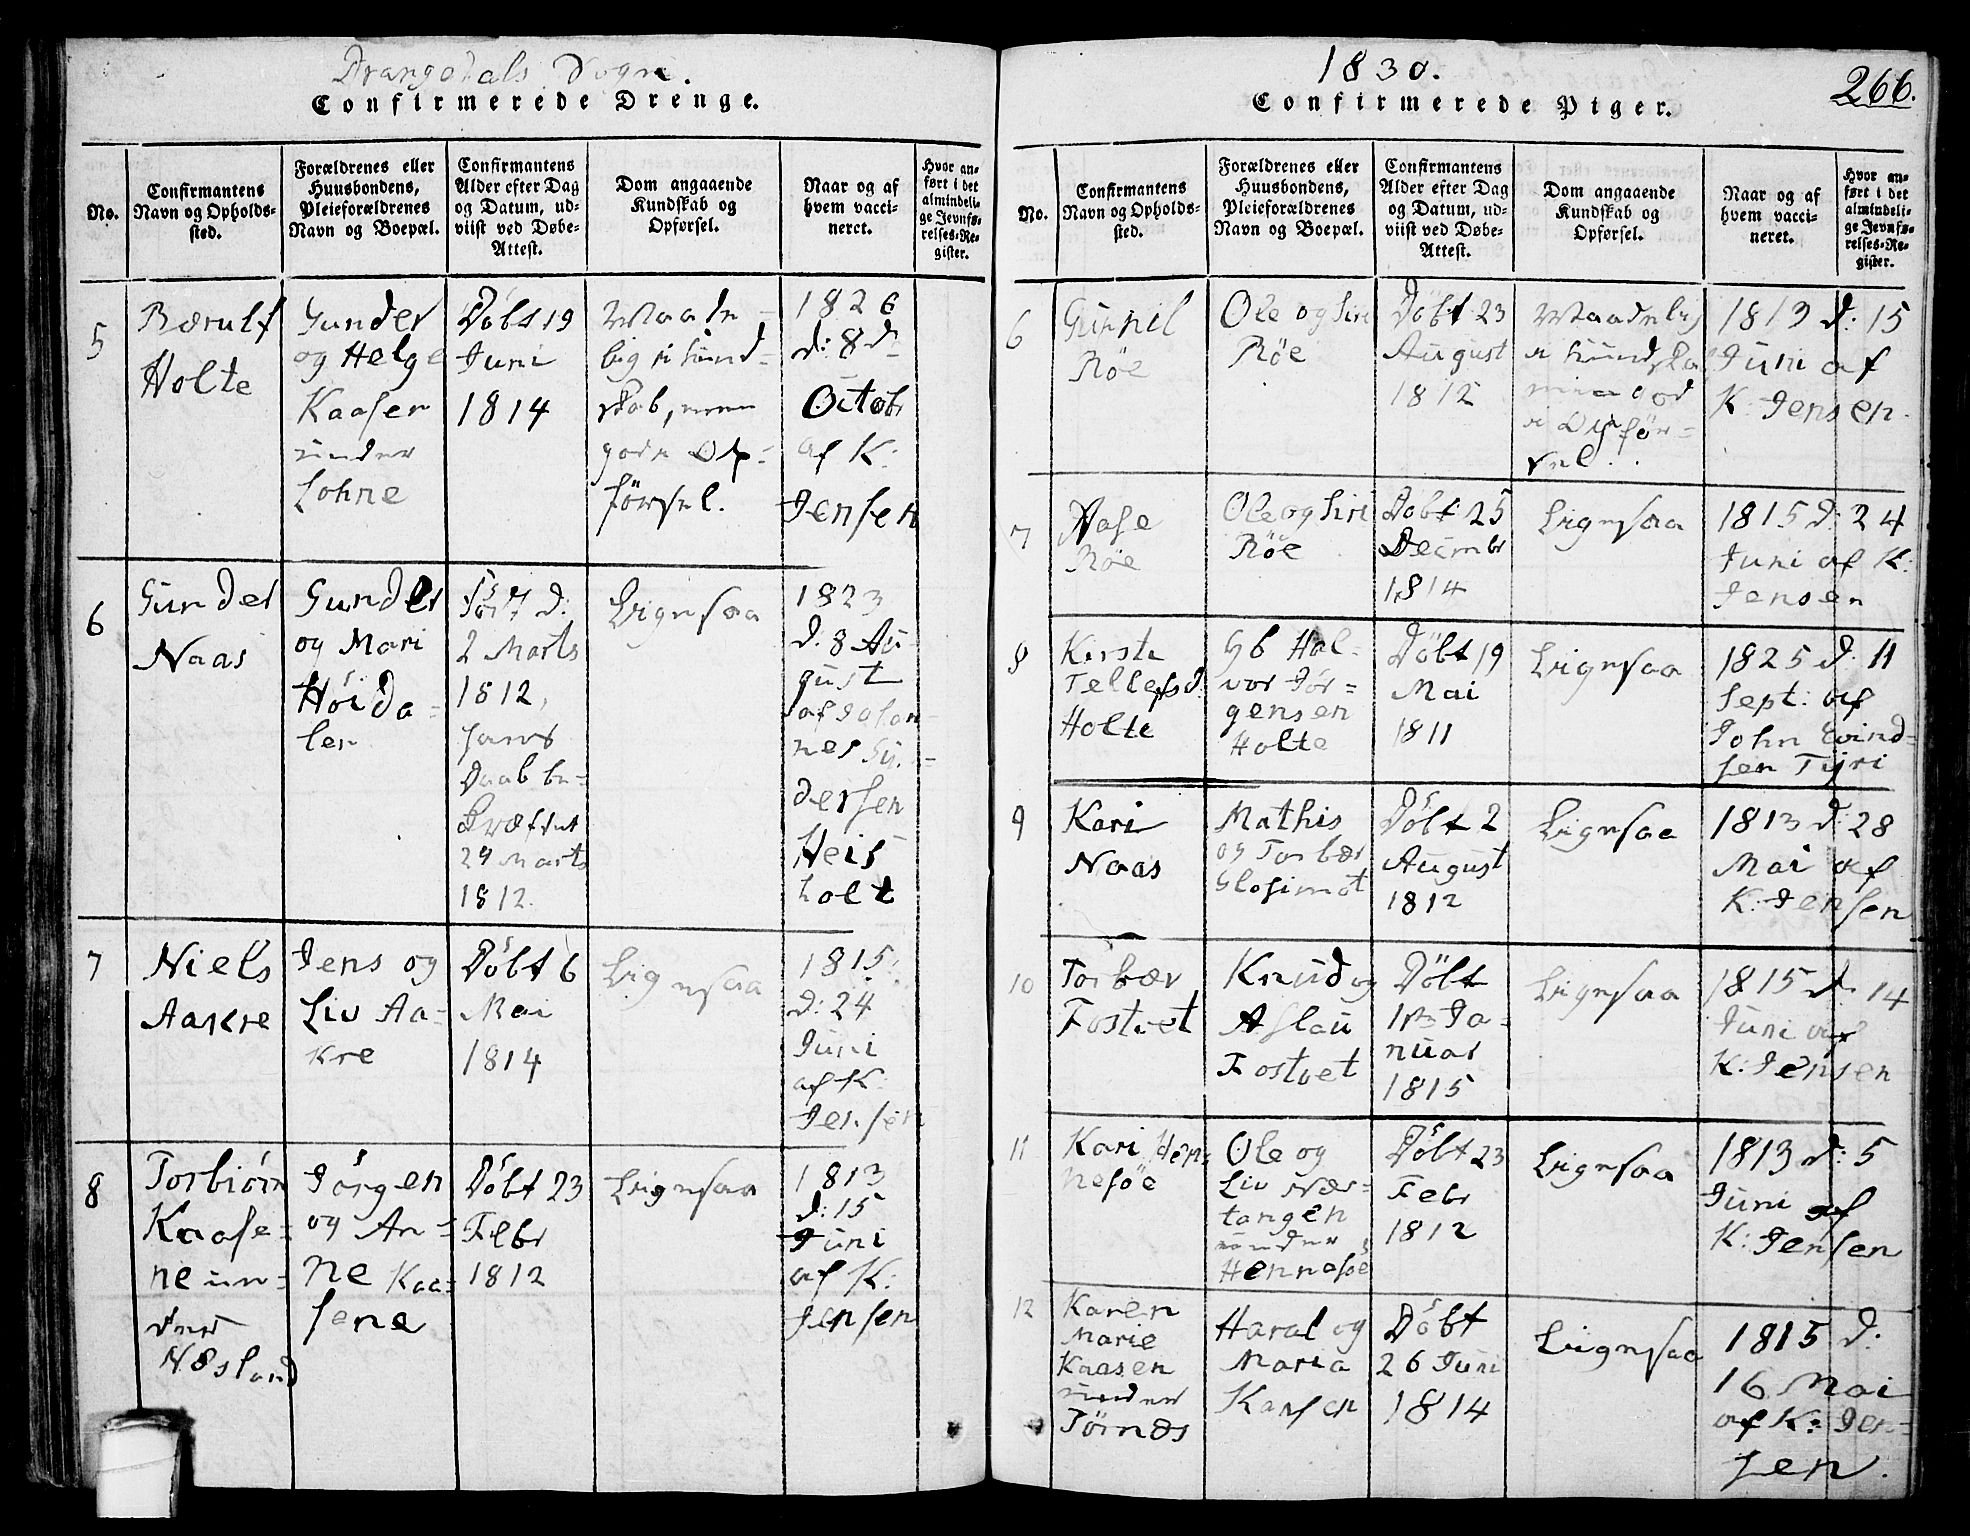 Drangedals Sogn.
Confirmerede Drenge.
No.
Confirmantens
Navn og Opholds-
sted.
Forældrenes eller
Huusbondens,
Pleieforældrenes
Navn og Boepæl.
Confirmantens
Alder efter Dag
og Datum, ud-
viist ved Døbe-
Attest.
Dom angaaende
Kundskab og
Opførsel.
Naar og af
hvem vacci-
neret.
Hvor an-
ført i det
almindeli-
ge Jevnfø-
relses-Re-
gister.
5
Bærulf
Holte
Gunder
og Helge
Kaasen
under
Lohne
Döbt 19
Juni
1814
Maade-
lig i Kund-
skab, men
god i Op-
försel.
1826
d: 8 d
Octobr
af K:
Jensen
6
Gunder
Naas
Gunder
og Mari
Höida-
len
d:
2 Marts
1812,
hans
Daab be-
kræftet
29 Marts
1812.
Ligesaa
1823
d. 8 Au-
gust
af Johan-
nes Gu-
dersen
Heis
holt
7
Niels
Aakre
Jens og
Liv Aa-
kre
Döbt 6
Mai
1814
Ligesaa
1815
d: 24
Juni
af K:
Jensen
8
Torbiörn
Kaase-
ne un-
der
Næsland
Jörgen
og An-
ne Kaa-
sene
Döbt 23
Febr
1812
Ligesaa
1813
d: 15
Juni
af K:
Jensen
1830.
266.
Confirmerede Piger.
No.
Confirmantens
Navn og Opholds-
sted.
Forældrenes eller
Huusbondens,
Pleieforældrenes
Navn og Boepæl.
Confirmantens
Alder efter Dag
og Datum, ud-
viist ved Døbe-
Attest.
Dom angaaende
Kundskab og
Opførsel.
Naar og af
hvem vacci-
neret.
Hvor an-
ført i det
almindeli-
ge Jevnfø-
relses-Re-
gister.
6
Gunnil
Röe
Ole og Siri
Röe
Döbt 23
August
1812
Maadelig
i Kundska
men god
i Opför-
sel.
1813 d: 15
Juni af
K: Jensen.
7
Aase
Röe
Ole og Siri
Röe
Döbt 25
Decimbr
1814
Ligesaa
1815 d: 24
Juni af K:
Jensen
8
Kirsti
Tellefsd:
Holte
Hal-
vor Jör-
gensen
Holte
Döbt 19
Mai
1811
Ligesaa
1825 d: 11
Sept: af
John Eivind-
sen Tyri
9
Kari
Naas
Mathis
og Torbær
Glosimot
Döbt 2
August
1812
Ligesaa
1813 d: 28
Mai af
K: Jensen
10
Torbær
Fostvet
Knud og
Aslau
Fostvet
Döbt
Ja-
nuar
1815
Ligesaa
1815 d: 14
Juni af
K: Jensen
11
Kari Hen-
nesöe
Ole og
Liv Nær-
tangen
under
Hennesöe
Döbt 23
Febr
1812
Ligesaa
1813 d: 5
Juni af
K: Jensen
12
Karen
Marie
Kaasen
under
Törnes
Haral og
Maria
Kaasen
Döbt
26 Juni
1814
Ligesaa
1815 d:
16 Mai
af K: Jen-
sen.